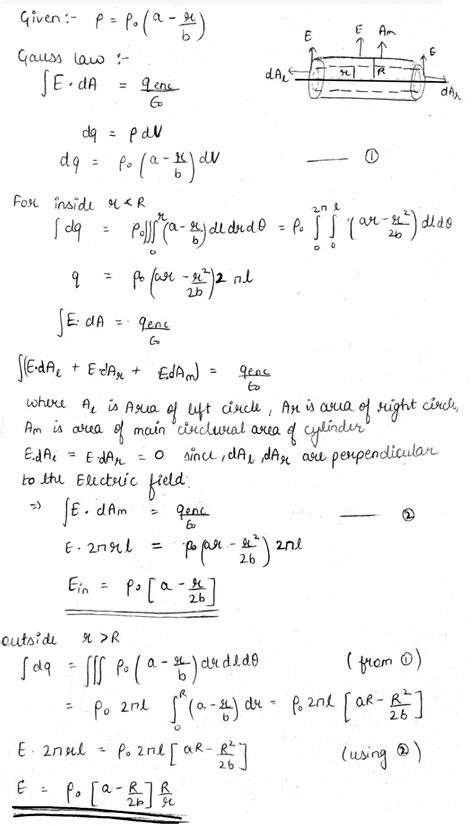 Given:- ρ = ρ₀(a - r/b)
E E Am E
dAℓ r R dAr
Gauss law :-
∫E·dA = qenc/ε₀
dq = ρdV
dq = ρ₀(a - r/b)dV ——— ①
For inside r < R
∫dq = ρ₀∭₀ʳ(a - r/b)dl dr dθ = ρ₀ ∫₀²ᵖⁱ ∫₀ˡ (ar - r²/2b) dl dθ
q = ρ₀(ar - r²/2b)2πl
∫E·dA = qenc/ε₀
∫(E·dAℓ + E·dAr + E·dAm) = qenc/ε₀
where Aℓ is Area of left circle, Ar is area of right circle,
Am is area of main circlural area of cylinder
E.dAℓ = E·dAr = 0 since, dAℓ, dAr are perpendicular
to the Electric field.
=> ∫E · dAm = qenc/ε₀ ——— ②
E · 2πrl = ρ₀(ar - r²/2b) 2πl
Ein = ρ₀[a - r/2b]
outside r > R
∫dq = ∭ρ₀(a - r/b)dr dl dθ (from ①)
= ρ₀ 2πl ∫₀ᴿ(a - r/b)dr = ρ₀ 2πl [aR - R²/2b]
E · 2πrl = ρ₀ 2πl [aR - R²/2b] (using ②)
E = ρ₀[a - R/2b] R/r